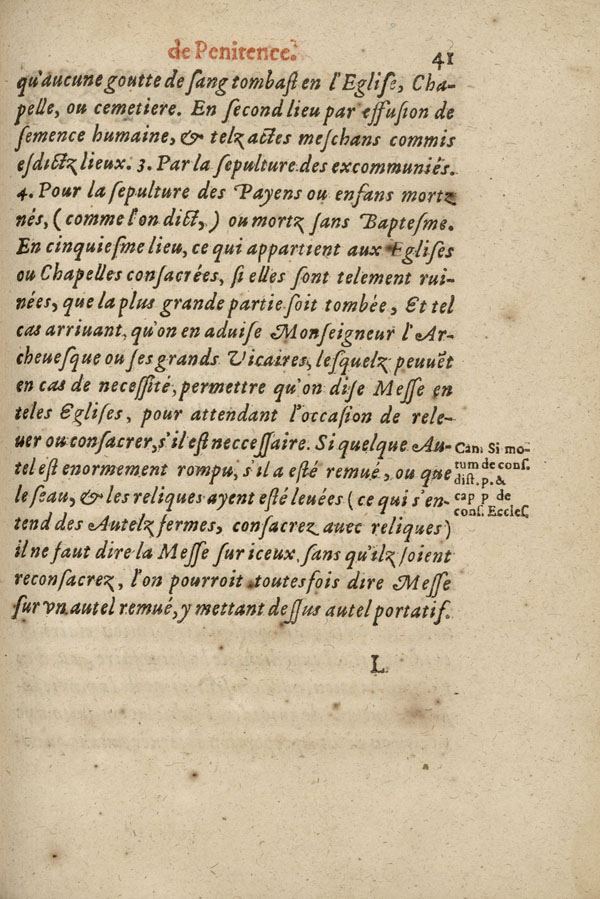 de Penitence.
41
qu'aucune goutte de sang tombast en l'Eglise, Cha-
pelle, ou cemetiere. En second lieu par effusion de
semence humaine, & telz actes meschans commis
esdictz lieux. 3. Par la sepulture des excommuniés.
4. Pour la sepulture des Payens ou enfans mortz
nés, (comme l'on dict,) ou mortz sans Baptesme.
En cinquiesme lieu, ce qui appartient aux Eglises
ou Chapelles consacrées, si elles sont telement rui-
nées, que la plus grande partie soit tombée, Et tel
cas arriuant, qu'on en aduise Monseigneur l'Ar-
cheuesque ou ses grands Vicaires, lesquelz peuuẽt
en cas de necessité, permettre qu'on dise Messe en
teles Eglises, pour attendant l'occasion de rele-
uer ou consacrer, s'il est neccessaire. Si quelque Au-
tel est enormement rompu, s'il a esté remué, ou que
le seau, & les reliques ayent esté leuées (ce qui s'en-
tend des Autelz fermes, consacrez auec reliques)
il ne faut dire la Messe sur iceux, sans qu'ilz soient
reconsacrez, l'on pourroit toutesfois dire Messe
sur vn autel remué, y mettant dessus autel portatif.
Can. Si mo-
tum de cons.
dist. p. &
cap p de
cons. Eccles.
L